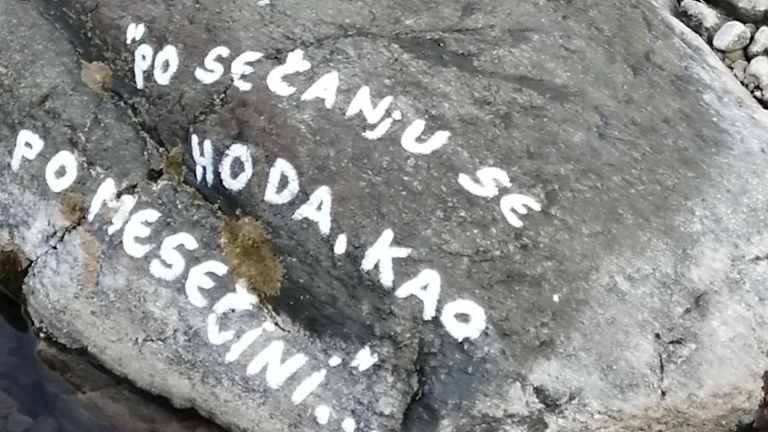 "PO SEĆANjU SE
HODA, KAO
PO MESEĆINI..."